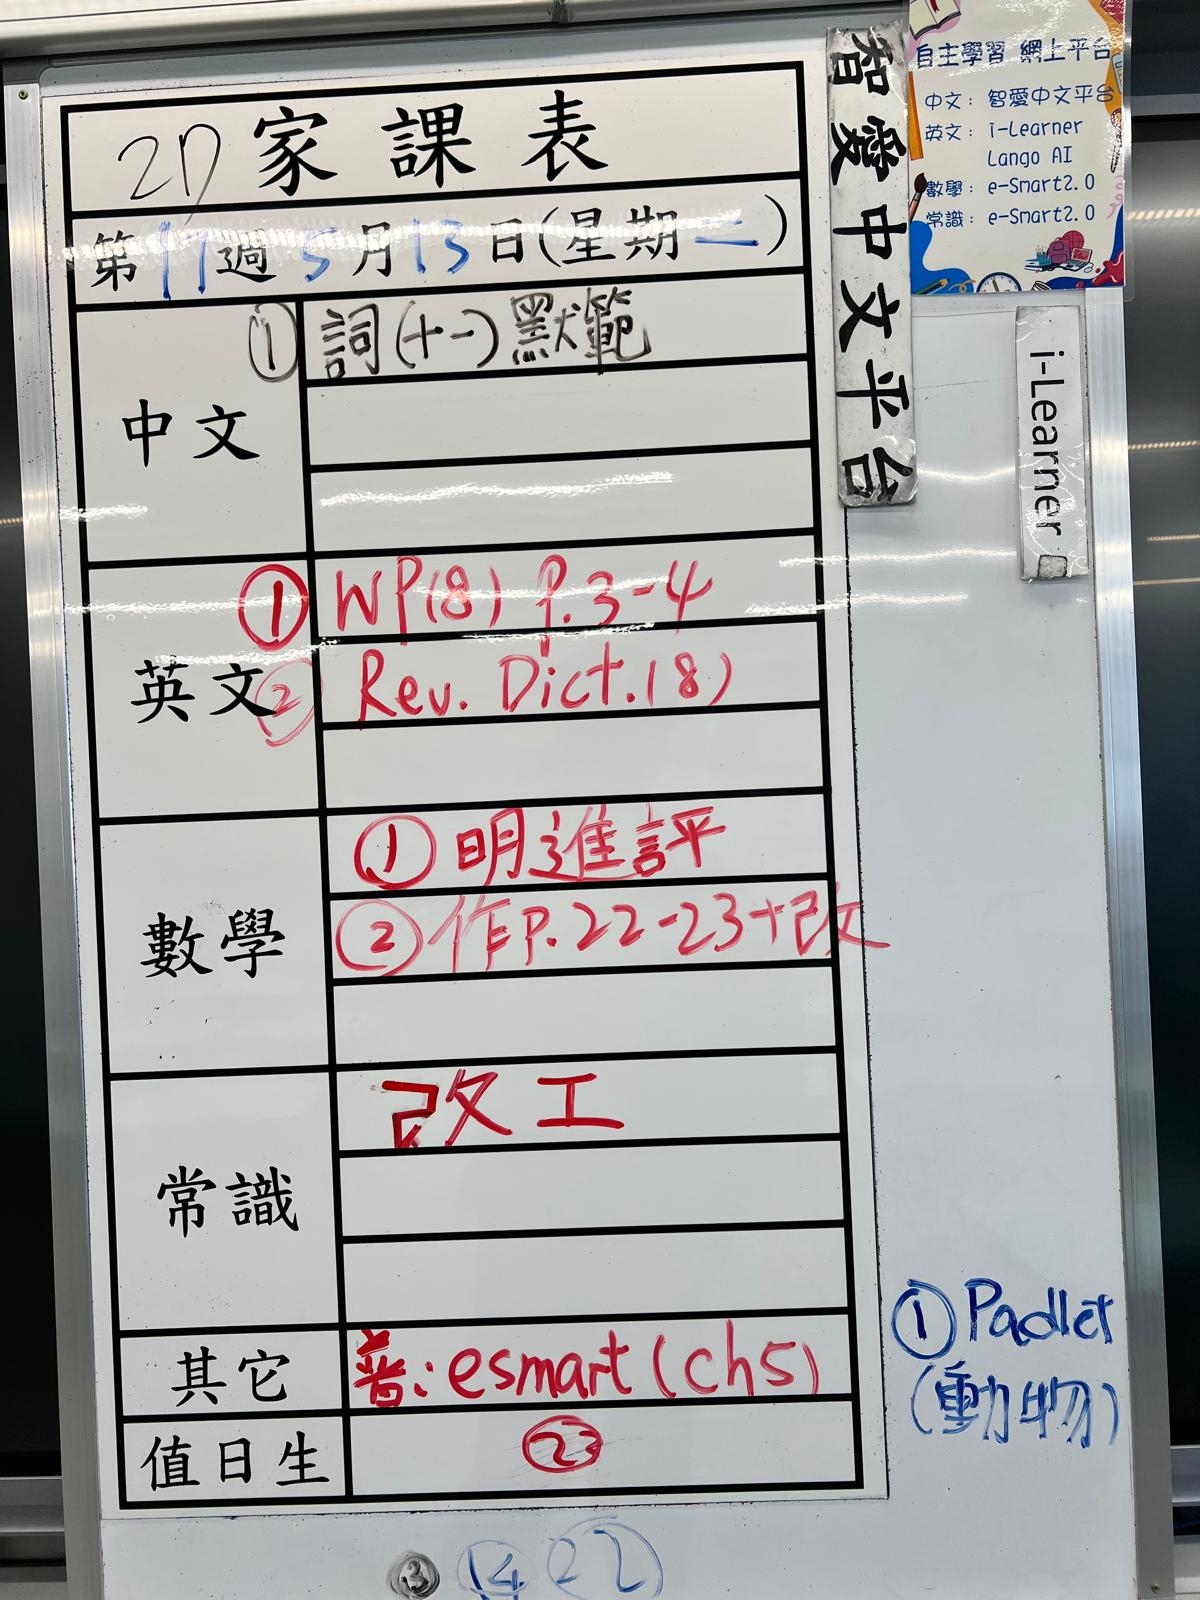 2D 家課表
第17週5月13日(星期一)
中文
① 詞(十一)默範
英文
① WP(8) p.3-4
② Rev. Dict.(8)
數學
① 明進評
② 作P.22-23+改
常識
改工
其它
普:esmart(ch5)
值日生
23
③ 14 22
智愛中文平台
自主學習 網上平台
中文: 智愛中文平台
英文: i-Learner
Lango AI
數學: e-Smart2.0
常識: e-Smart2.0
i-Learner
① Padlet
(動物)